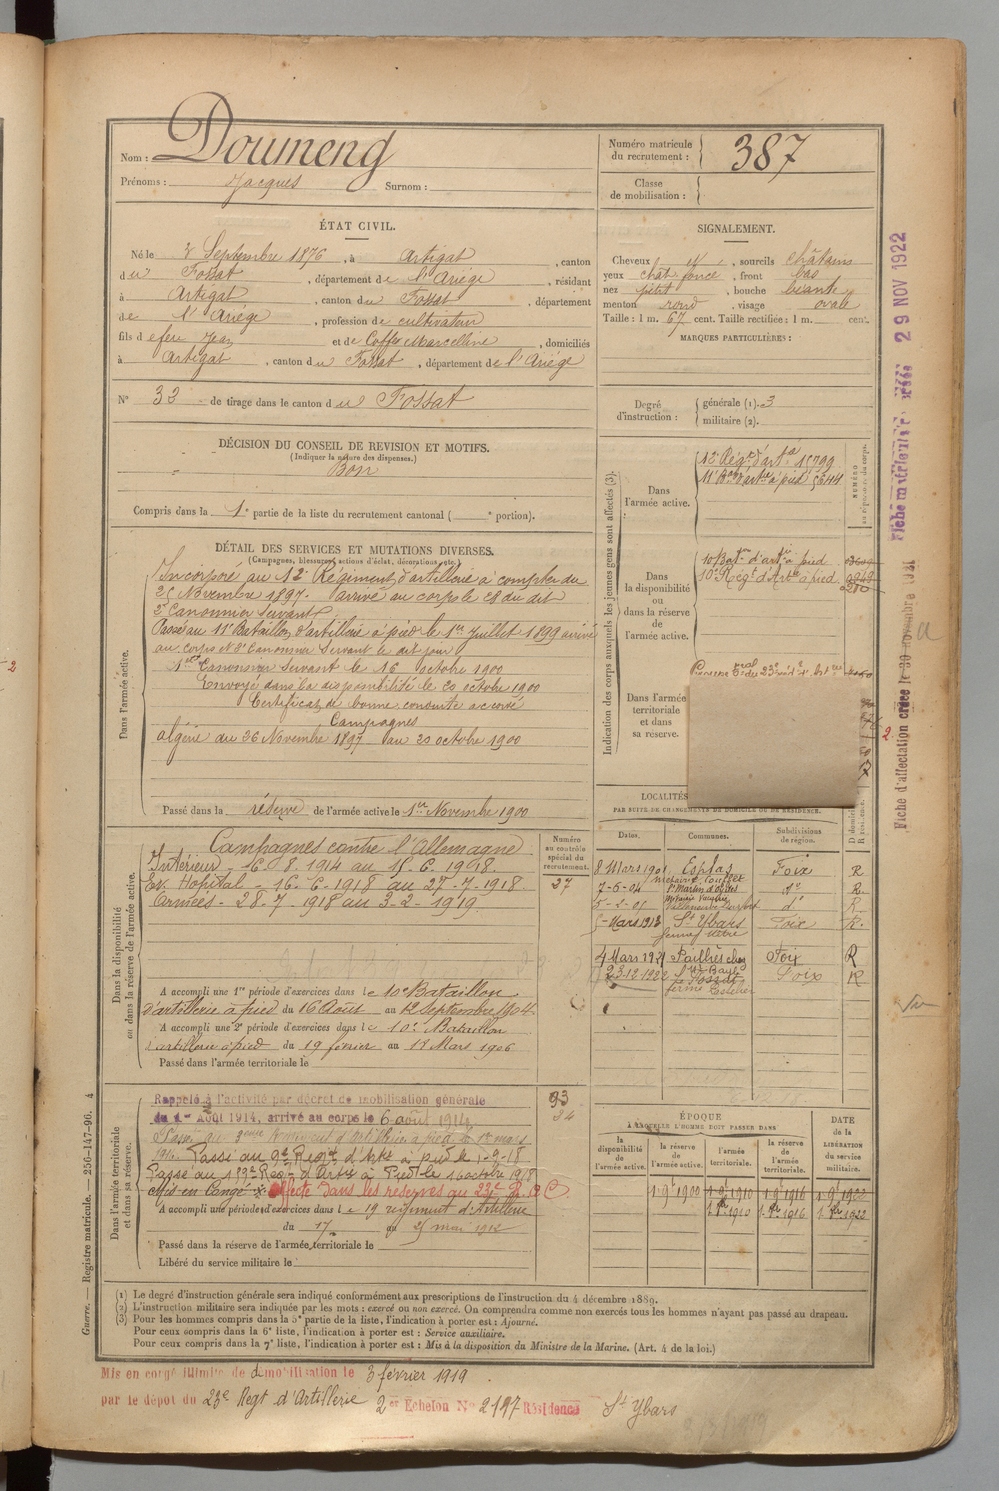 Nom : Doumeng
Prénoms : Jacques Surnom :
Numéro matricule du recrutement : 387
Classe de mobilisation :
ÉTAT CIVIL.
Né le 3 Septembre 1876, à Artigat, canton
du Fossat, département de l'Ariège, résidant
à Artigat, canton du Fossat, département
de l'Ariège, profession de cultivateur
fils d efeu Jean et de Coffe Marcelline, domiciliés
à Artigat, canton du Fossat, département de l'Ariège
N° 32 de tirage dans le canton du Fossat
SIGNALEMENT.
Cheveux id, sourcils châtains
yeux chât. foncé, front bas
nez petit, bouche béante
menton rond, visage ovale
Taille : 1 m. 67 cent. Taille rectifiée : 1 m. cent.
MARQUES PARTICULIÈRES :
Degré d'instruction : générale (1). 3
militaire (2).
DÉCISION DU CONSEIL DE REVISION ET MOTIFS.
(Indiquer la nature des dispenses.)
Bon
Compris dans la 1e partie de la liste du recrutement cantonal ( e portion).
DÉTAIL DES SERVICES ET MUTATIONS DIVERSES.
(Campagnes, blessures, actions d'éclat, décorations, etc.)
Dans l'armée active.
Incorporé au 12e Régiment d'artillerie à compter du
26 Novembre 1897. Arrivé au corps le 28 du dit
2e Canonnier Servant
Passé au 11e Bataillon d'artillerie à pied le 1er Juillet 1899 arrivé
au corps 2e Canonnier Servant le dit jour
1er Canonnier Servant le 16 octobre 1900
Envoyé dans la disponibilité le 20 octobre 1900
Certificat de bonne conduite accordé
Campagnes
Algérie du 26 Novembre 1897 au 20 octobre 1900
Passé dans la réserve de l'armée active le 1er Novembre 1900
Indication des corps auxquels les jeunes gens sont affectés (3).
Dans l'armée active.
12e Régt d'artie 15799
11e Bon d'artie à pied 5644
NUMÉRO au répertoire du corps.
Dans la disponibilité ou dans la réserve de l'armée active.
10e Baton d'artie à pied
10e Régt d'Artie à pied
Dans l'armée territoriale et dans sa réserve.
LOCALITÉS
PAR SUITE DE CHANGEMENTS DE DOMICILE OU DE RÉSIDENCE.
Dates. Communes. Subdivisions de région. D domicile R résidence.
8 Mars 1901 Esplas Foix R
7-6-04 St Martin d'Oydes do R
5-2-01 d° R
Mars 1913 St Ybars Foix R.
4 Mars 1921 Pailhès chez Foix R
23-12-1922 Fossat Foix R
Dans la disponibilité ou dans la réserve de l'armée active.
Campagnes contre l'Allemagne
Intérieur - 6.8.1914 au 15.6.1918.
Ev. Hopital - 16-6-1918 au 27-7-1918.
Armées - 28-7-1918 au 3-2-1919.
Numéro au contrôle spécial du recrutement.
27
A accompli une 1re période d'exercices dans le 10e Bataillon
d'artillerie à pied du 16 Août au 12 Septembre 1904
A accompli une 2e période d'exercices dans le 10e Bataillon
d'artillerie à pied du 19 février au 18 Mars 1906
Passé dans l'armée territoriale le
Dans l'armée territoriale et dans sa réserve.
Rappelé à l'activité par décret de mobilisation générale
du 1er Août 1914, arrivé au corps le 6 août 1914
93
34
Passé au 9e Regt d'Artie à pied le 1-9-18
Passé au 182e Regt d'Artie à Pied le 16 octobre 1918
Affecté dans les réserves au 23e R A C
A accompli une période d'exercices dans le 19e régiment d'Artillerie
du 17 au 25 mai 1912
Passé dans la réserve de l'armée territoriale le
Libéré du service militaire le
ÉPOQUE
A LAQUELLE L'HOMME DOIT PASSER DANS
DATE de la LIBÉRATION du service militaire.
la disponibilité de l'armée active. la réserve de l'armée active. l'armée territoriale. la réserve de l'armée territoriale.
1.9bre 1900 1.9bre 1910 1.9bre 1916 1.9bre 1922
1.8bre 1910 1.8bre 1916 1.8bre 1922
(1) Le degré d'instruction générale sera indiqué conformément aux prescriptions de l'instruction du 4 décembre 1889.
(2) L'instruction militaire sera indiquée par les mots : exercé ou non exercé. On comprendra comme non exercés tous les hommes n'ayant pas passé au drapeau.
(3) Pour les hommes compris dans la 5e partie de la liste, l'indication à porter est : Ajourné.
Pour ceux compris dans la 6e liste, l'indication à porter est : Service auxiliaire.
Pour ceux compris dans la 7e liste, l'indication à porter est : Mis à la disposition du Ministre de la Marine. (Art. 4 de la loi.)
Mis en congé illimité de démobilisation le 3 février 1919
par le dépot du 23e Regt d'Artillerie 2e Echelon No 2197 Résidence St Ybars
Guerre. — Registre matricule. — 256-147-96. 4
29 NOV 1922
Fiche d'affectation créée le 30 novembre